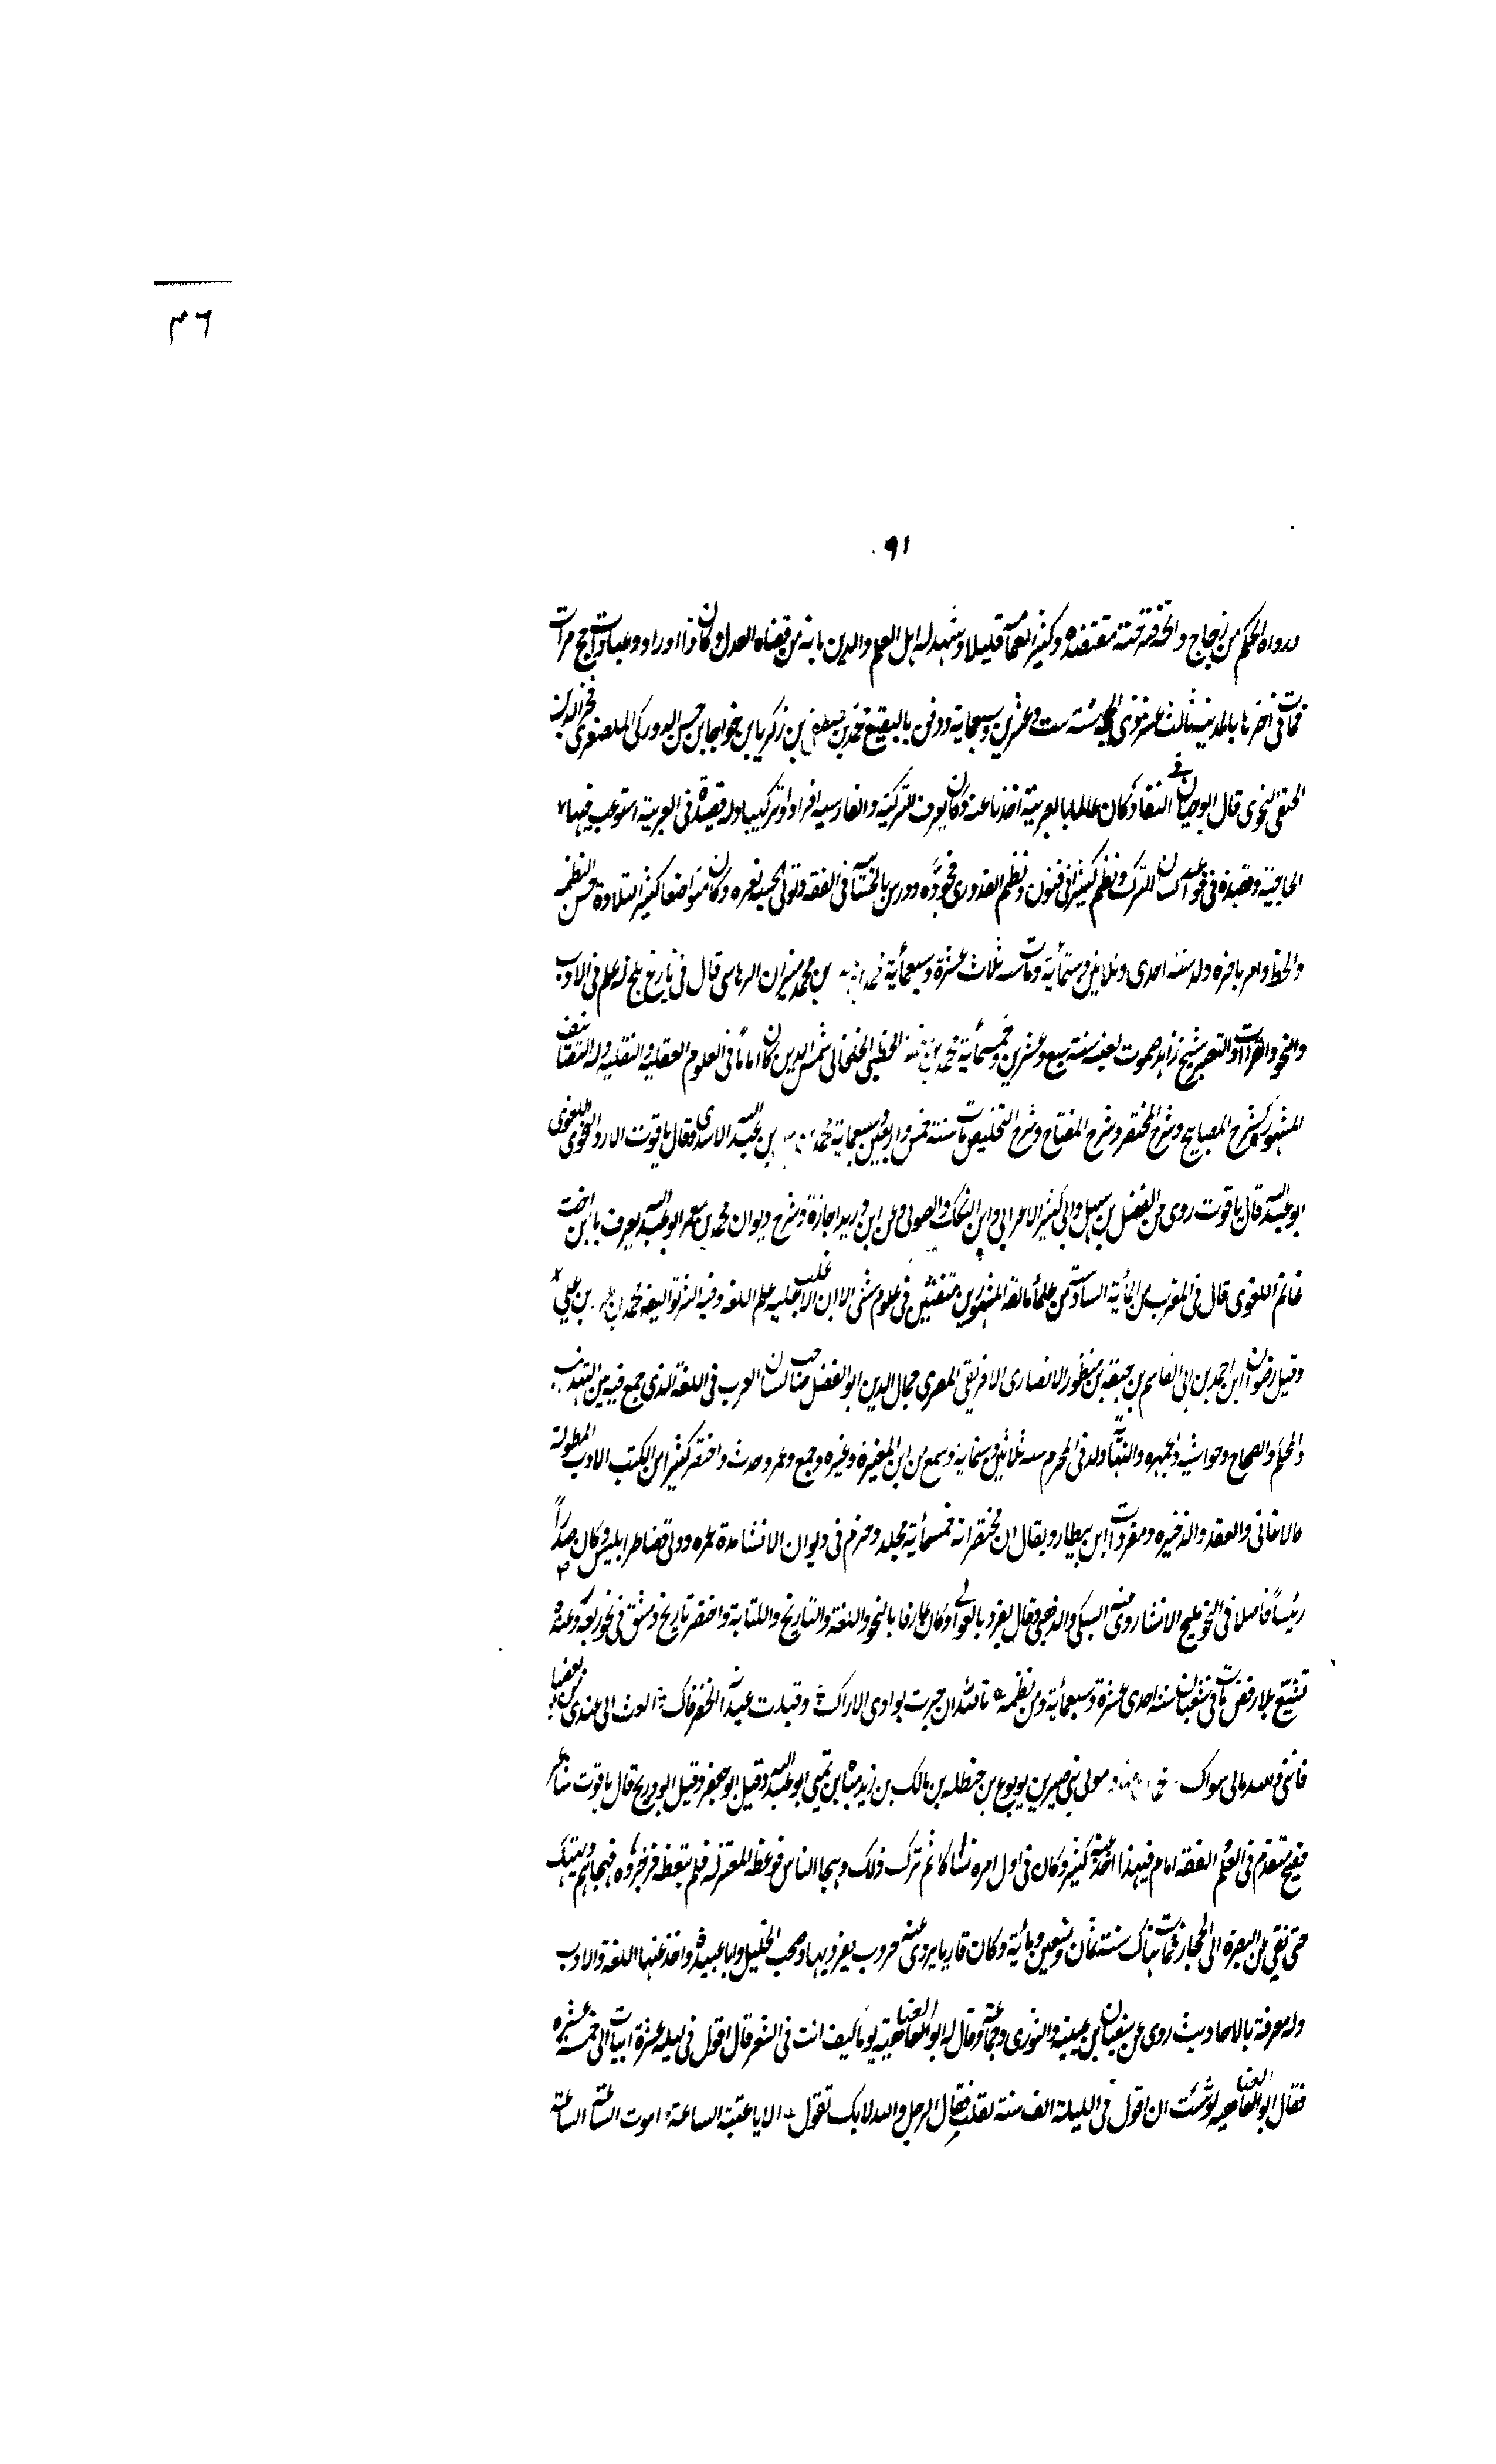 ٤٦
٩١
ورواه الحكم من زجاج والحقة تحته مقتصده وكثير العمامة قليلا وشهد له اهل العلم والدين بانه من قضاة العدل وكان ذا اوراد وعبادات حج مرات
مات في اخرها بالمدينة ثالث عشر ذي الحجة سنة ست وعشرين وسبعماية ودفن بالبقيع محمد بن مصطفى بن زكريا بن خواجا بن حسن الدوركي الصلغري فخر الدين
الحنفي النحوي قال ابو حيان في النضار كان عالما بالعربية اخذنا عنه وكان يعرف التركية والفارسية افرادا وتركيبا وله قصيدة في العربية استوعب فيها
الحاجبية وقصيدة في قواعد لسان الترك ونظم كثيرا في فنون ونظم القدوري مجودة ودرس بالحسامية في الفقه وتولى الحسبة بغزه وكان متواضعا كثير التلاوة حسن النظمة
والخط وعمر باخره ولد سنة احدى وثلاثين وستمائة ومات سنة ثلاث عشرة وسبعمائة محمد بن محمد ميزان الرهاسي قال في تاريخ بلخ له علم في الادب
والنحو والقراآت والتعبير شيخ زاهد صموت لقيته سنة سبع وعشرين وخمسمائة محمد بن الخطيبي الخلخالي شمس الدين كان اماما في العلوم العقلية والنقلية وله التصانيف
المشهورة كشرح المصابيح وشرح المختصر وشرح المفتاح وشرح التلخيص مات سنة خمس واربعين وسبعماية محمد بن عبد الله الاسدي وقال ياقوت الازدي النحوي اللغوي
ابو عبد الله قال ياقوت روى عن الفضل بن سهل وابي كثير الاعرابي وابن السكيت والصولي وعن ابن دريد اجازة وشرح ديوان محمد بن معمر ابو عبد الله يعرف بابن اخت
غانم اللغوي قال في المغرب من المأية السادسة من علماء مالقة المشهورين متفنن في علوم شتى الا ان الاغلب عليه علم اللغة وفيه اكثر تواليفه محمد بن بن علي
وقيل رضوان ابن احمد بن ابي القاسم بن حبقة بن منظور الانصاري الافريقي المصري جمال الدين ابو الفضل صاحب لسان العرب في اللغة الذي جمع فيه بين التهذيب
والمحكم والصحاح وحواشيه والجمهره والنهاية ولد في المحرم سنة ثلاثين وستماية وسمع من ابن المغيرة وغيره وجمع وعمر وحدث واختصر كثيرا من كتب الادب المطولة
كالاغاني والعقد والذخيره ومفردات ابن بيطار ويقال ان مختصراته خمسمأية مجلد وخدم في ديوان الانشا مدة عمره وولى قضا طرابلس وكان صدرا
رئيسا فاضلا في النحو مليح الانشا روى عنه السبكي والذهبي وقال تفرد بالعوالي وكان عارفا بالنحو واللغة والتاريخ والكتابة واختصر تاريخ دمشق في نحو ربعه وعنده
تشيع بلا رفض مات في شعبان سنة احدى عشرة وسبعمأية ومن نظمه تالله ان جزت بوادي الاراك وقبلت عيدانه الخضر فاك ابعث الى عندي من بعضها
فانني والله مالي سواك مولى بني صبير بن يربوع بن حنظله بن مالك بن زيد مناة بن تميم ابو عبد الله وقيل ابو جعفر وقيل ابو ذريح قال ياقوت شاعر
فصيح متقدم في العلم الفقه امام فيه هذا اخذ عنه كثير وكان في اول امره ناسكا ثم ترك ذلك وهجا الناس فوعظه المعتزلة فلم يتعظ فزجروه فهجاهم وتهتك
حتى نفي من البصرة الى الحجاز فمات هناك سنة ثمان وتسعين ومأية وكان قاريا يروى عنه حروف يفرد بها وصحب الخليل وابا عبيدة واخذ عنهما اللغة والادب
وله معرفة بالاحاديث روى عن سفيان بن عيينه والثوري وجماعة وقال له ابو العتاهية يوما كيف انت في الشعر قال اقول في ليلة عشرة ابيات الى خمسة عشره
فقال ابو العتاهيه لو شئت ان اقول في الليلة الف سنة لقلت فقال الرجل والله لانك تقول الا يا عتبة الساعة اموت الساعة الساعة